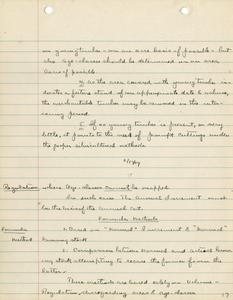 on young timber - on an area basis if possible - but
the Age-classes should be determined on an area
basis if possible.
2) As the area covered with young timber in-
dicates a future stand of an appropriate date to
the merchantable timber may be removed in the inter-
vening period.
3) If no young timber is present, or very
little, it points to the need of prompt cuttings under
the proper silvicultural methods.
Regulation where Age-classes cannot be mapped.
In such cases the Annual Increment must
be the basis of the Annual Cut.
Formula Methods
Formula 1. Based on "Normal" Increment & "Normal"
Method Growing stock
2. Comparisons between Normal and actual Grow-
ing stock attempting to secure the former from the
latter.
These methods are based solely on Volume -
Regulation, disregarding area & age-classes